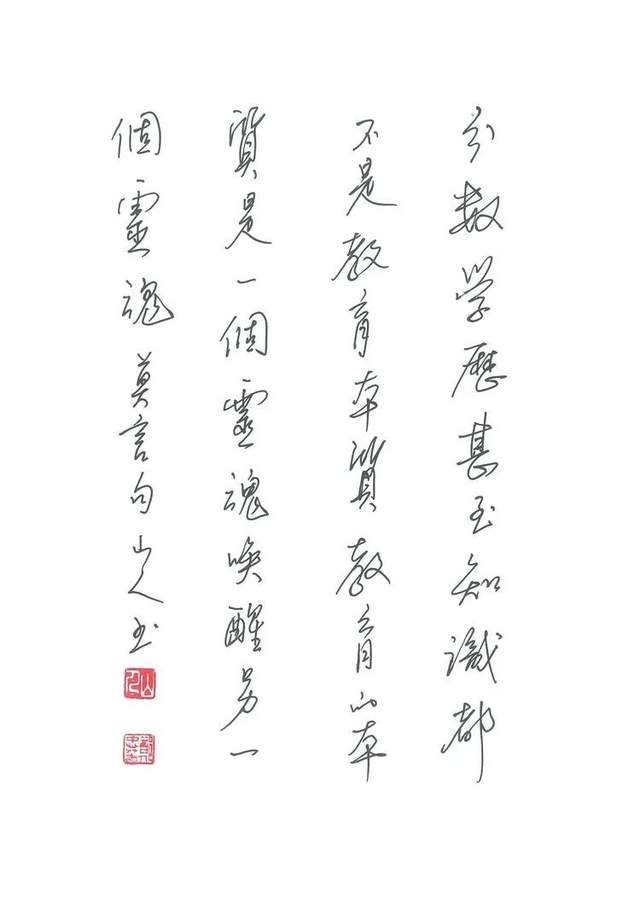 分数学歷甚至知識都
不是教育本質教育的本
質是一個靈魂喚醒另一
個靈魂莫言句山人书
山人